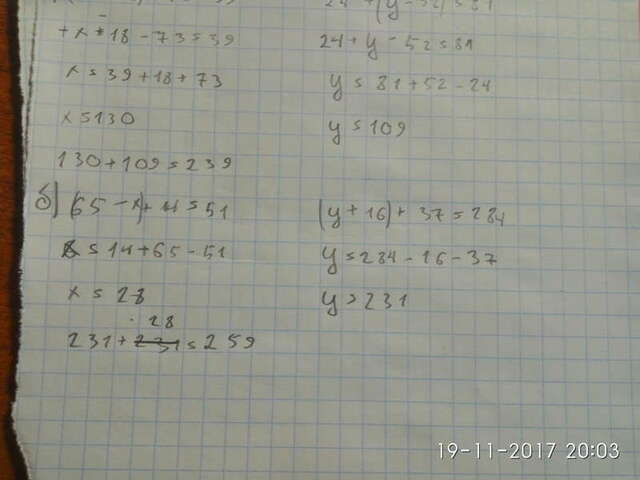 24 + (y - 52) = 81
+ x - 18 - 73 = 39
x = 39 + 18 + 73
x = 130
130 + 109 = 239
24 + y - 52 = 81
y = 81 + 52 - 24
y = 109
б) (65 - x) + 14 = 51
x = 14 + 65 - 51
x = 28
28
231 + 231 = 259
(y + 16) + 37 = 284
y = 284 - 16 - 37
y = 231
19-11-2017 20:03